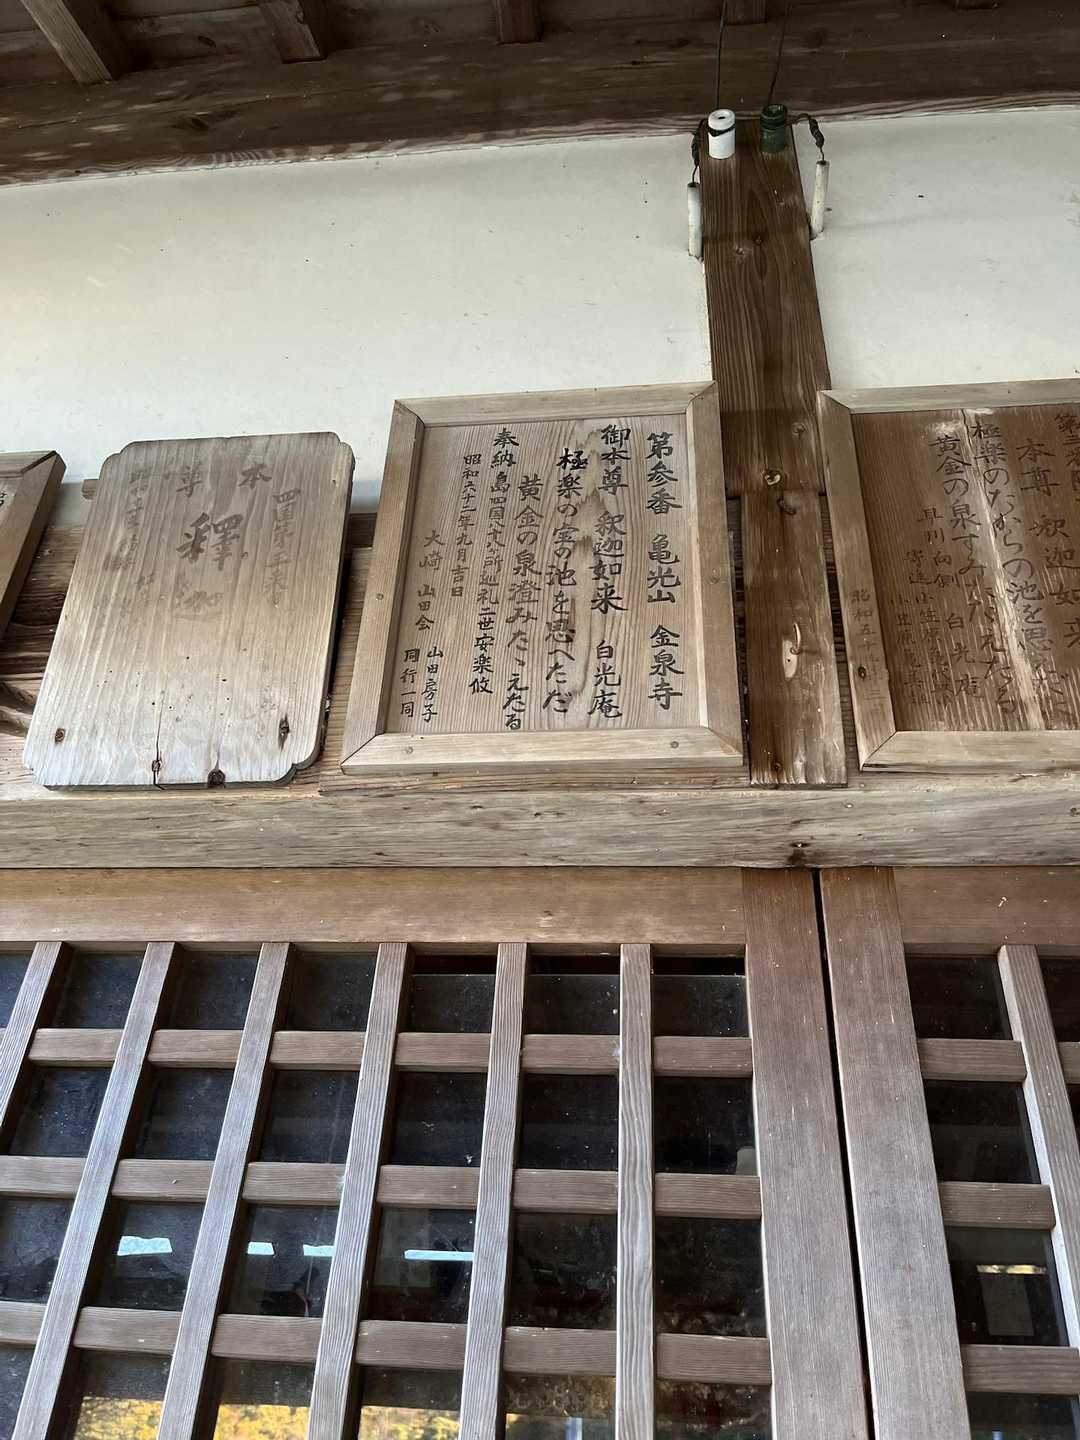 第三番
本尊 釈迦如来
極楽のたからの池を思へただ
黄金の泉すみたたえたる
早川向側 白光庵
寄進
昭和五十
第参番 亀光山 金泉寺
御本尊 釈迦如来 白光庵
極楽の宝の池を思へただ
黄金の泉澄みたゝえたる
奉納 島四国八十八ヶ所巡礼二世安楽攸
昭和六十二年九月吉日
大崎 山田会 山田房子
同行一同
四国第三番
本尊
釋迦
第